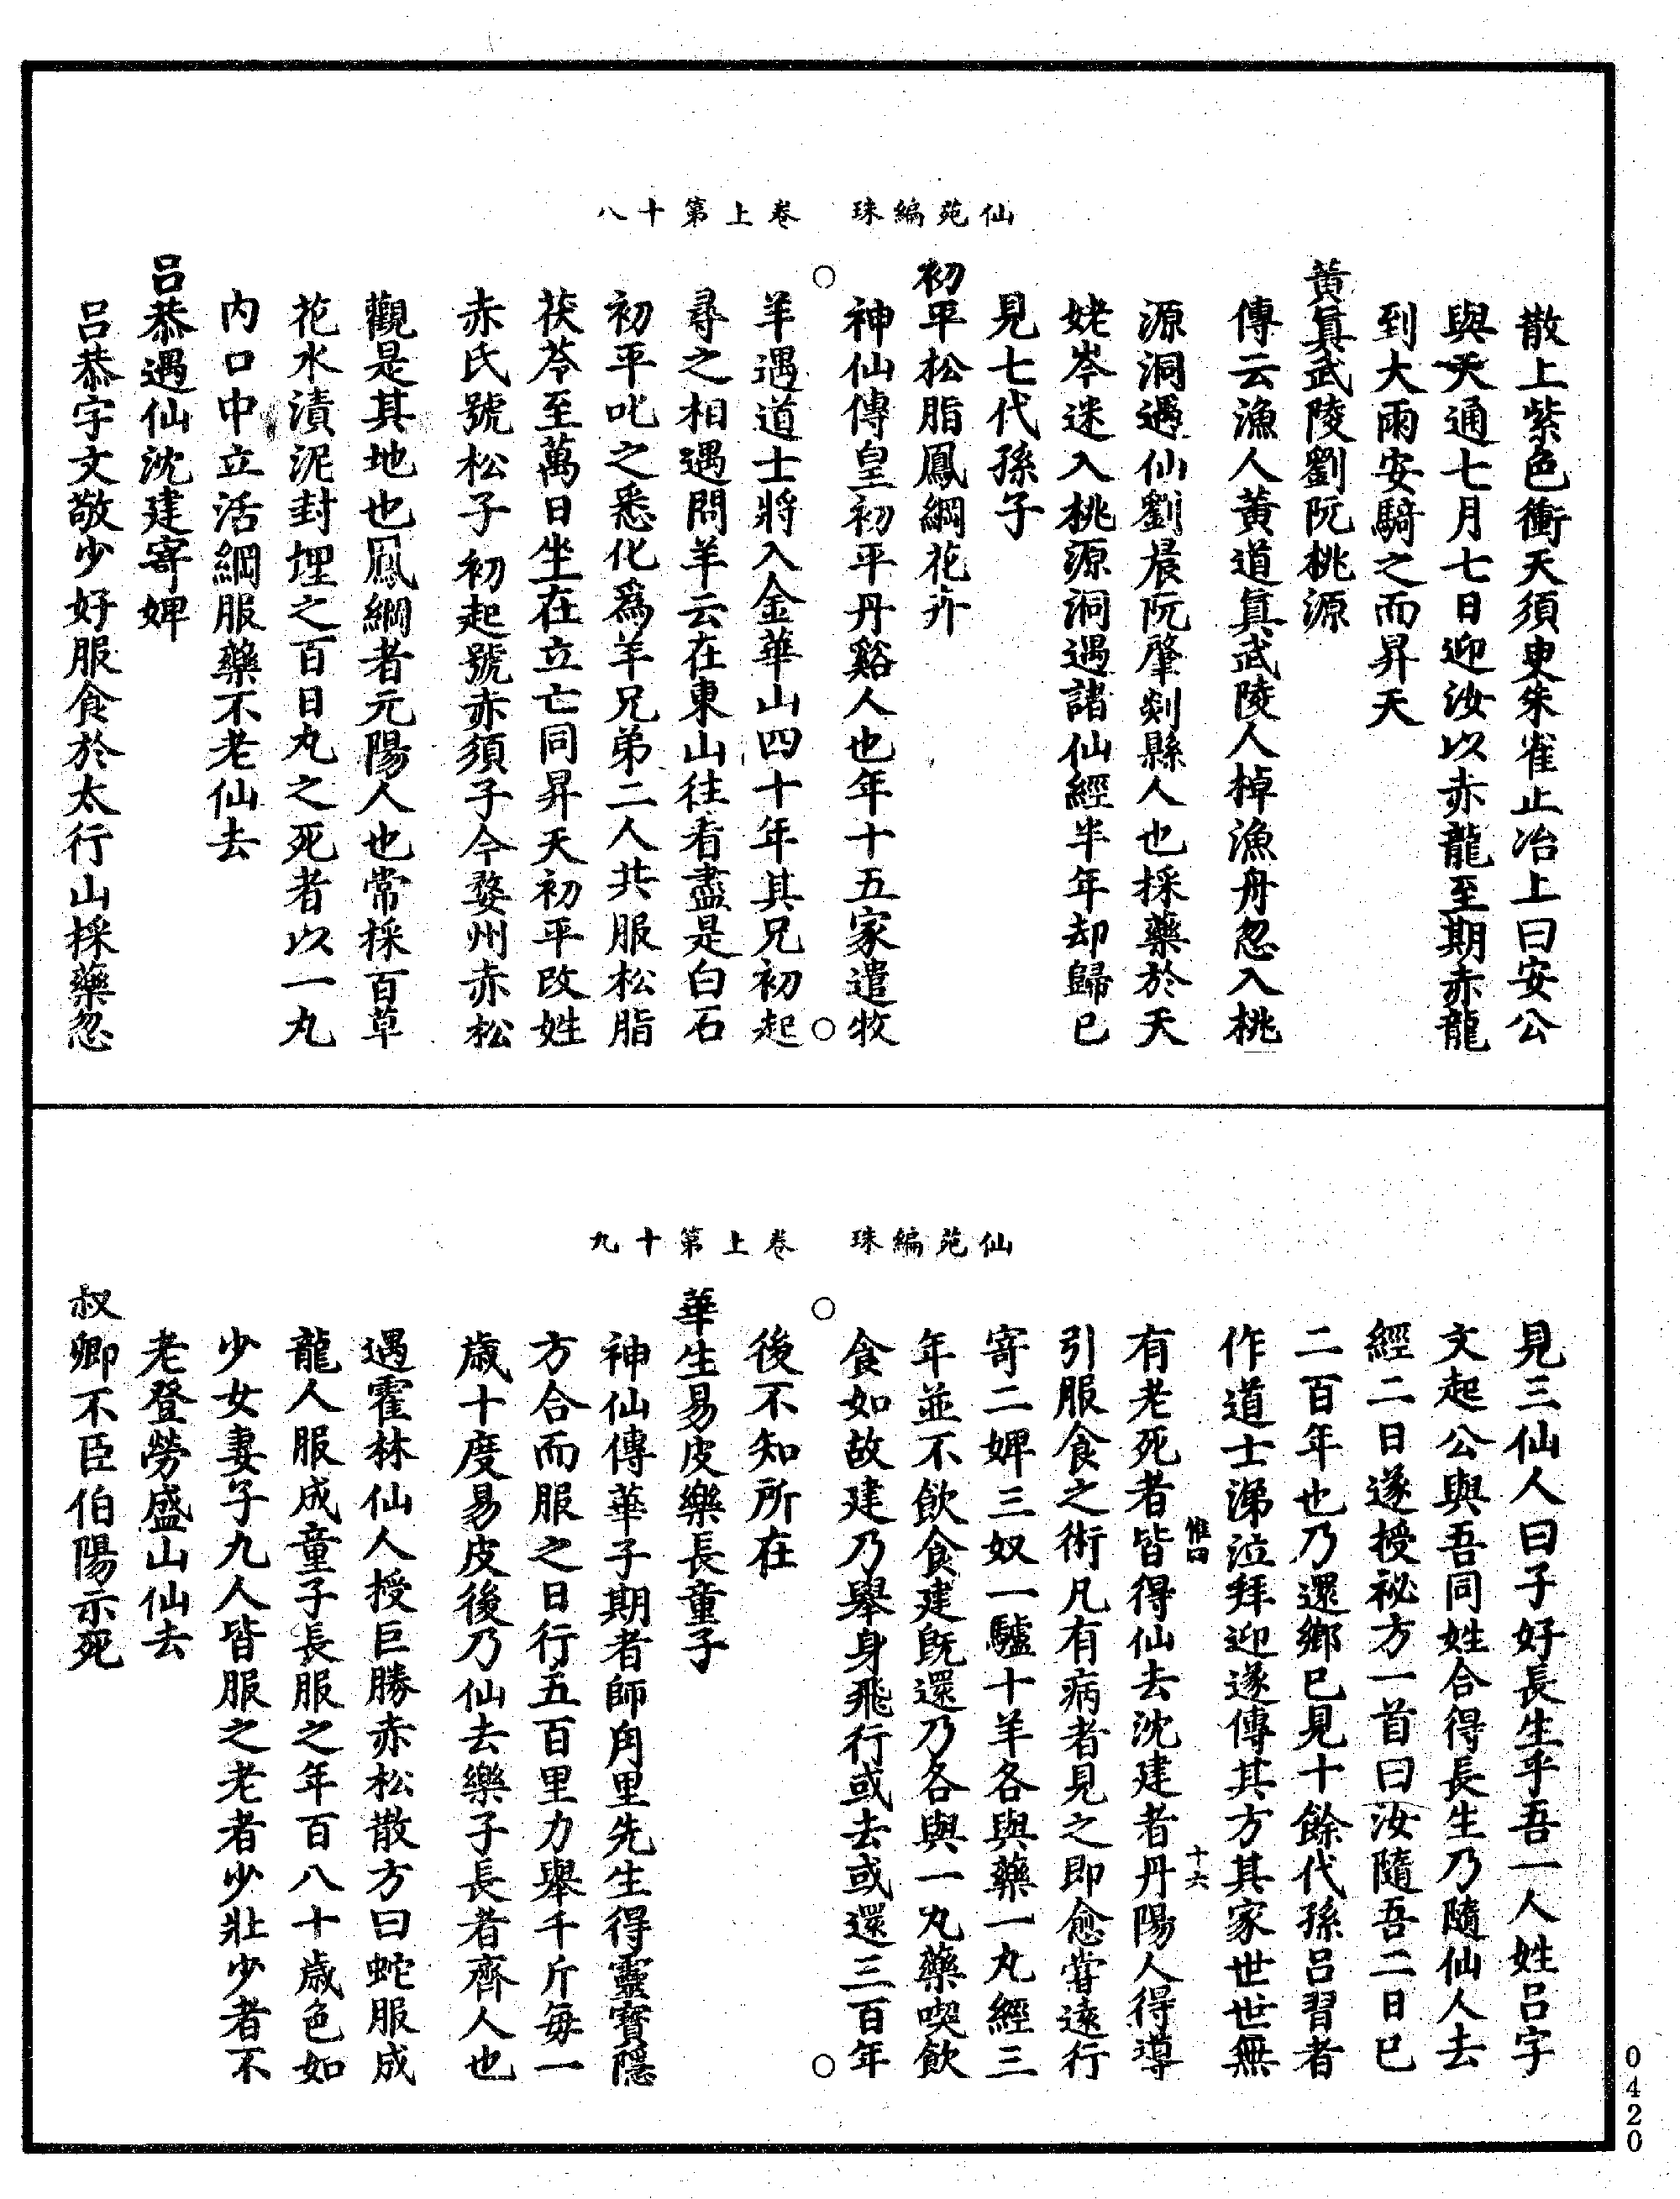 仙苑編珠　卷上第十八
散上紫色衝天須臾朱雀止冶上曰安公
與天通七月七日迎汝以赤龍至期赤龍
到大雨安騎之而昇天
黃眞武陵劉阮桃源
傳云漁人黃道眞武陵人棹漁舟忽入桃
源洞遇仙劉晨阮肇剡縣人也採藥於天
姥岑迷入桃源洞遇諸仙經半年却歸已
見七代孫子
初平松脂鳳綱花卉
神仙傳皇初平丹谿人也年十五家遣牧
羊遇道士將入金華山四十年其兄初起
尋之相遇問羊云在東山往看盡是白石
初平叱之悉化爲羊兄弟二人共服松脂
茯苓至萬日坐在立亡同昇天初平改姓
赤氏號松子初起號赤須子今婺州赤松
觀是其地也鳳綱者元陽人也常採百草
花水漬泥封埋之百日丸之死者以一丸
内口中立活綱服藥不老仙去
吕恭遇仙沈建寄婢
吕恭字文敬少好服食於太行山採藥忽
仙苑編珠　卷上第十九
見三仙人曰子好長生乎吾一人姓吕字
文起公與吾同姓合得長生乃隨仙人去
經二日遂授祕方一首曰汝隨吾二日已
二百年也乃還鄉已見十餘代孫吕習者
作道士涕泣拜迎遂傳其方其家世世無
惟曰　十六
有老死者皆得仙去沈建者丹陽人得導
引服食之術凡有病者見之即愈嘗遠行
寄二婢三奴一驢十羊各與藥一丸經三
年並不飲食建旣還乃各與一丸藥喫飲
食如故建乃舉身飛行或去或還三百年
後不知所在
華生易皮樂長童子
神仙傳華子期者師角里先生得靈寶隱
方合而服之日行五百里力舉千斤每一
歲十度易皮後乃仙去樂子長者齊人也
遇霍林仙人授巨勝赤松散方曰蛇服成
龍人服成童子長服之年百八十歲色如
少女妻子九人皆服之老者少壯少者不
老登勞盛山仙去
叔卿不臣伯陽示死
0420